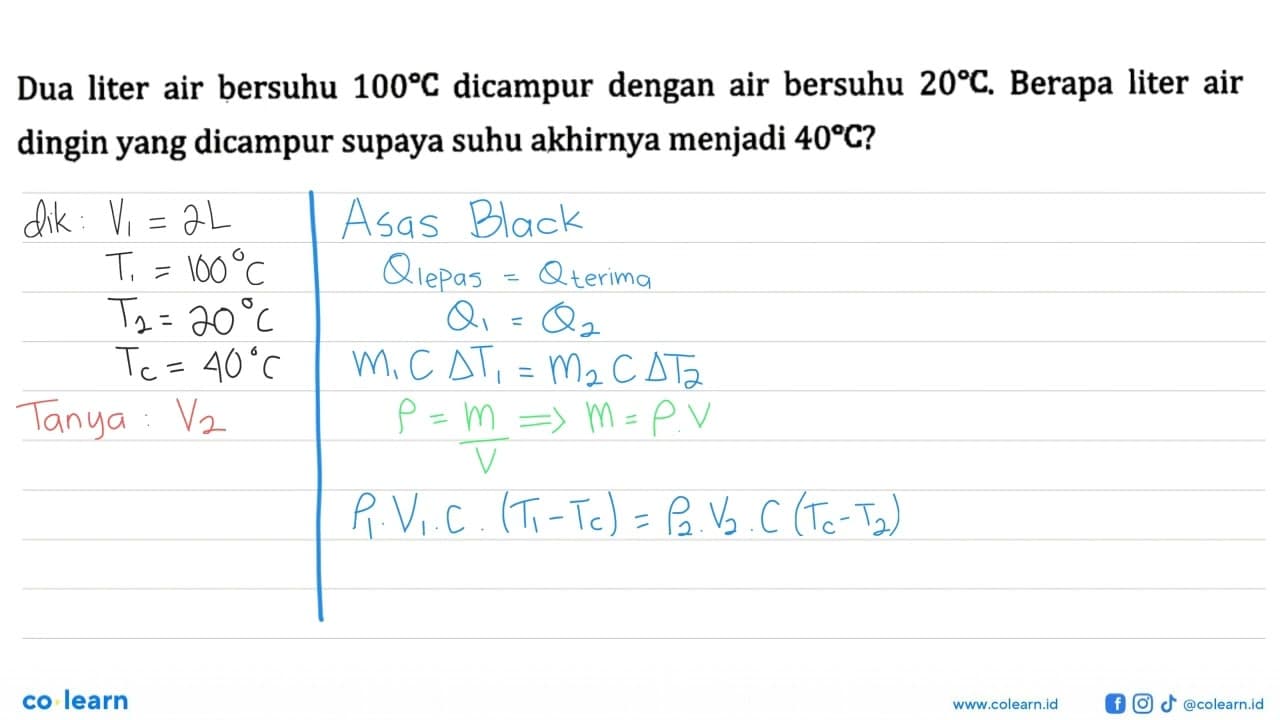 Dua liter air bersuhu 100°C dicampur dengan air bersuhu 20°C. Berapa liter air
dingin yang dicampur supaya suhu akhirnya menjadi 40°C?
dik: V₁ = 2L
T₁ = 100°C
T₂ = 20°C
Tc = 40°C
Tanya: V₂
Asas Black
Qlepas = Qterima
Q₁ = Q₂
m₁ C ΔT₁ = m₂ C ΔT₂
ρ = m/V => m = ρ.V
ρ₁.V₁.C.(T₁-Tc) = ρ₂.V₂.C(Tc-T₂)
co learn
www.colearn.id
@colearn.id